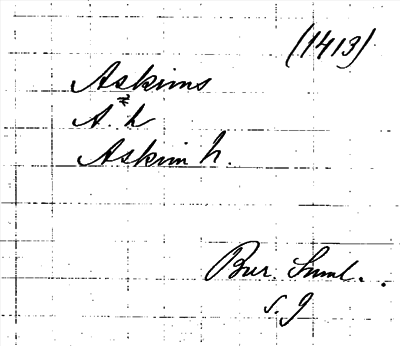 (1413)
Askims
A. h
Askim h.
Bur. Saml.
s. 9